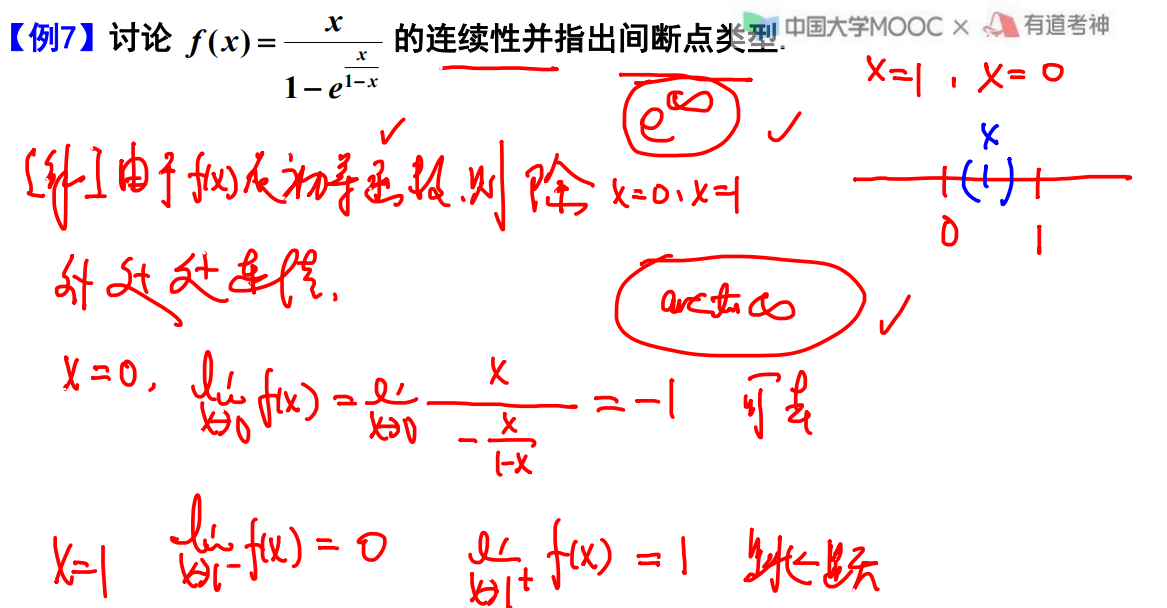 【例7】讨论 f(x) = x / (1 - e^{x/(1-x)}) 的连续性并指出间断点类型.
中国大学MOOC × 有道考神
x=1, x=0
e^∞ ✓
x
0 1
[解] 由于 f(x) 为初等函数,则除 x=0, x=1
外处处连续.
arctan ∞ ✓
x=0, lim_{x→0} f(x) = lim_{x→0} x / (-x/(1-x)) = -1 可去
x=1 lim_{x→1^-} f(x) = 0 lim_{x→1^+} f(x) = 1 跳跃